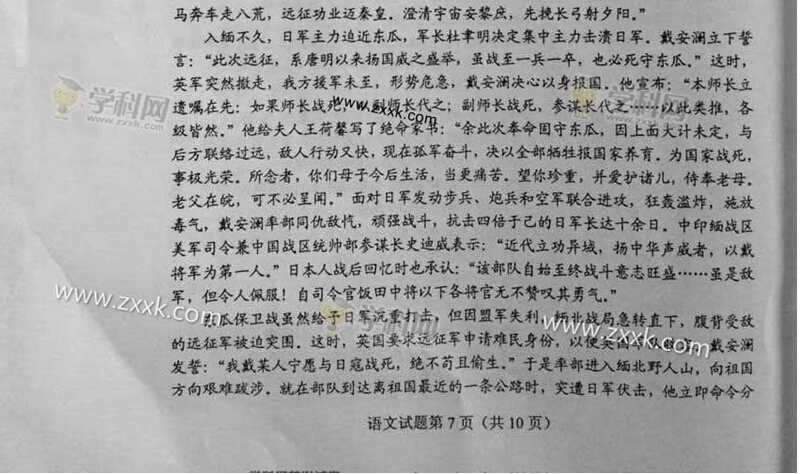 马奔车走八荒，远征功业迈秦皇。澄清宇宙安黎庶，先挽长弓射夕阳。”
入缅不久，日军主力迫近东瓜，军长杜聿明决定集中主力击溃日军。戴安澜立下誓
言：“此次远征，系唐明以来扬国威之盛举，虽战至一兵一卒，也必死守东瓜。”这时，
英军突然撤走，我方援军未至，形势危急，戴安澜决心以身报国。他宣布：“本师长立
遗嘱在先：如果师长战死，副师长代之；副师长战死，参谋长代之……以此类推，各
级皆然。”他给夫人王荷馨写了绝命家书：“余此次奉命固守东瓜，因上面大计未定，与
后方联络过远，敌人行动又快，现在孤军奋斗，决以全部牺牲报国家养育。为国家战死，
事极光荣。所念者，你们母子今后生活，当更痛苦。望你珍重，并爱护诸儿，侍奉老母。
老父在皖，可不必呈闻。”面对日军发动步兵、炮兵和空军联合进攻，狂轰滥炸，施放
毒气，戴安澜率部同仇敌忾，顽强战斗，抗击四倍于己的日军长达十余日。中印缅战区
美军司令兼中国战区统帅部参谋长史迪威表示：“近代立功异域，扬中华声威者，以戴
将军为第一人。”日本人战后回忆时也承认：“该部队自始至终战斗意志旺盛……虽是敌
军，但令人佩服！自司令官饭田中将以下各将官无不赞叹其勇气。”
瓜保卫战虽然给予日军沉重打击，但因盟军失利，缅北战局急转直下，腹背受敌
的远征军被迫突围。这时，英国要求远征军申请难民身份，以便英 戴安澜
发誓：“我戴某人宁愿与日寇战死，绝不苟且偷生。”于是率部进入缅北野人山，向祖国
方向艰难跋涉。就在部队到达离祖国最近的一条公路时，突遭日军伏击，他立即命令分
语文试题第 7 页（共 10 页）
学科网
www.zxxk.com
学科网
www.zxxk.com
学科网
www.zxxk.com
www.zxxk.com